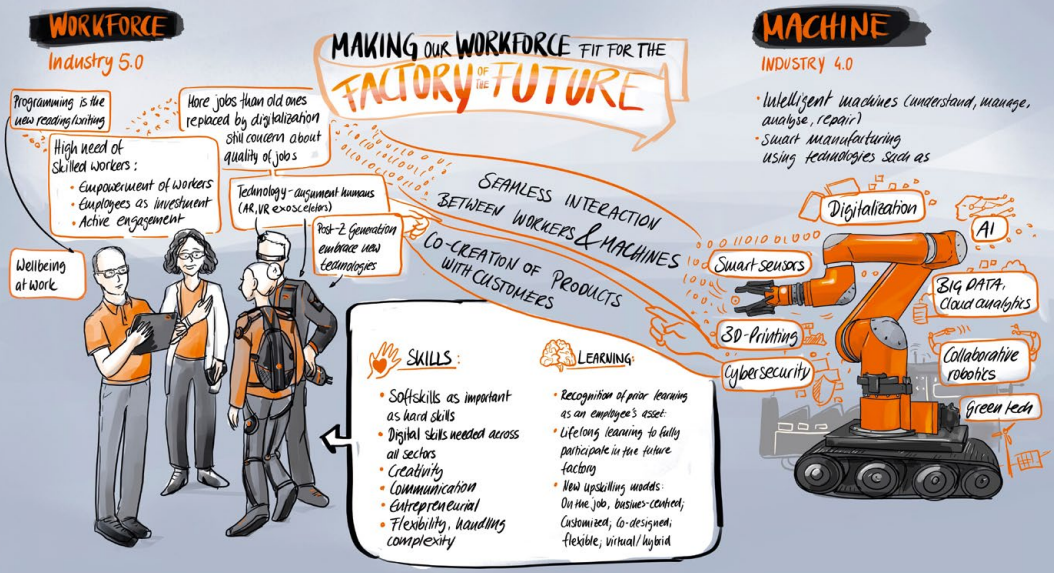 WORKFORCE
Industry 5.0
MAKING OUR WORKFORCE FIT FOR THE
FACTORY OF THE FUTURE
MACHINE
INDUSTRY 4.0
• Intelligent machines (understand, manage,
analyse, repair)
• Smart manufarturing
using technologies such as
Programming is the
new reading/writing
More jobs than old ones
replaced by digitalization
still concern about
quality of jobs
High need of
skilled workers:
• Empowerment of workers
• Employees as investment
• Active engagement
Technology-augument humans
(AR, VR exosceletors)
Post-Z Generation
embrace new
technologies
Wellbeing
at work
SEAMLESS INTERACTION
BETWEEN WORKERS & MACHINES
CO-CREATION OF PRODUCTS
WITH CUSTOMERS
Digitalization
AI
Smart sensors
BIG DATA,
Cloud analytics
3D-Printing
Collaborative
robotics
Cybersecurity
Green tech
SKILLS:
• Softskills as important
as hard skills
• Digital skills needed across
all sectors
• Creativity
• Communication
• Entrepreneurial
• Flexibility, handling
complexity
LEARNING:
• Recognition of prior learning
as an employee's asset.
• Lifelong learning to fully
participate in the future
factory
• New upskilling models:
On the job, busines-centred;
Customized; Co-designed;
flexible; virtual/hybrid